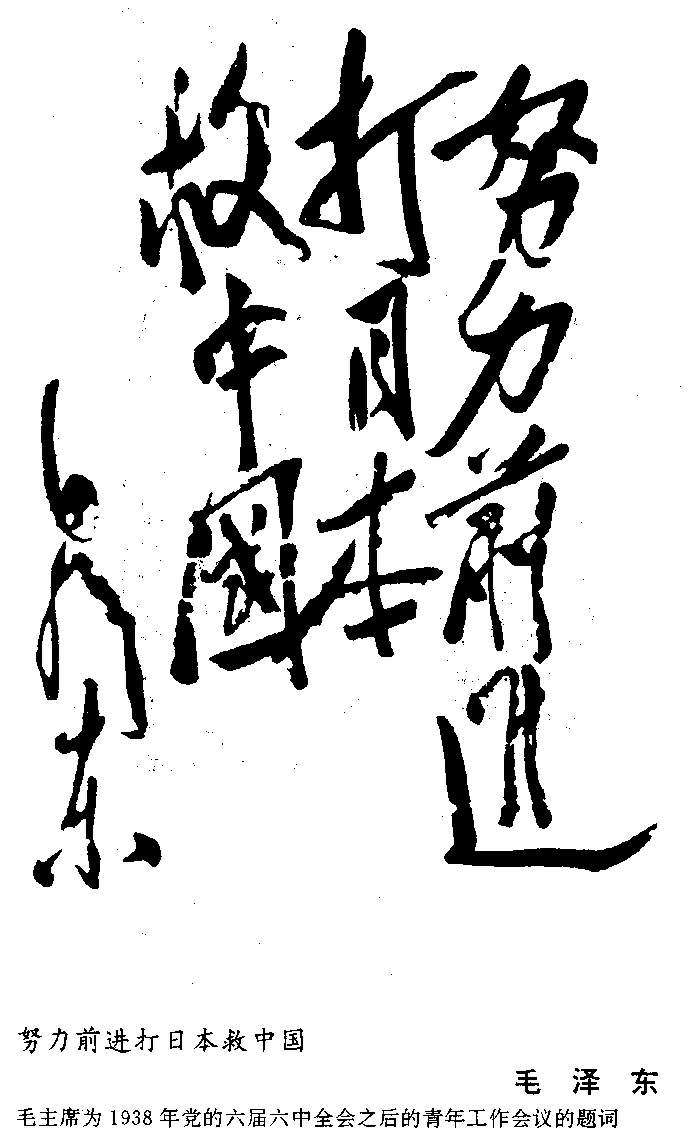 努力前進
打日本
救中國
毛泽东
努力前进打日本救中国
毛泽东
毛主席为1938年党的六届六中全会之后的青年工作会议的题词